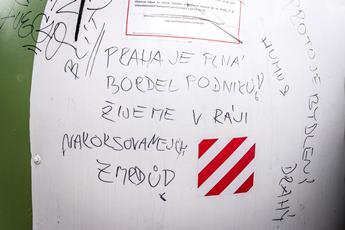 PRAHA JE PLNÁ
BORDEL PODNIKŮ!
ŽIJEME V RÁJI
NAKOKSOVANEJCH
ZMRDŮD
PROTO JE BYDLENÍ
DRAHÝ
HUMUS